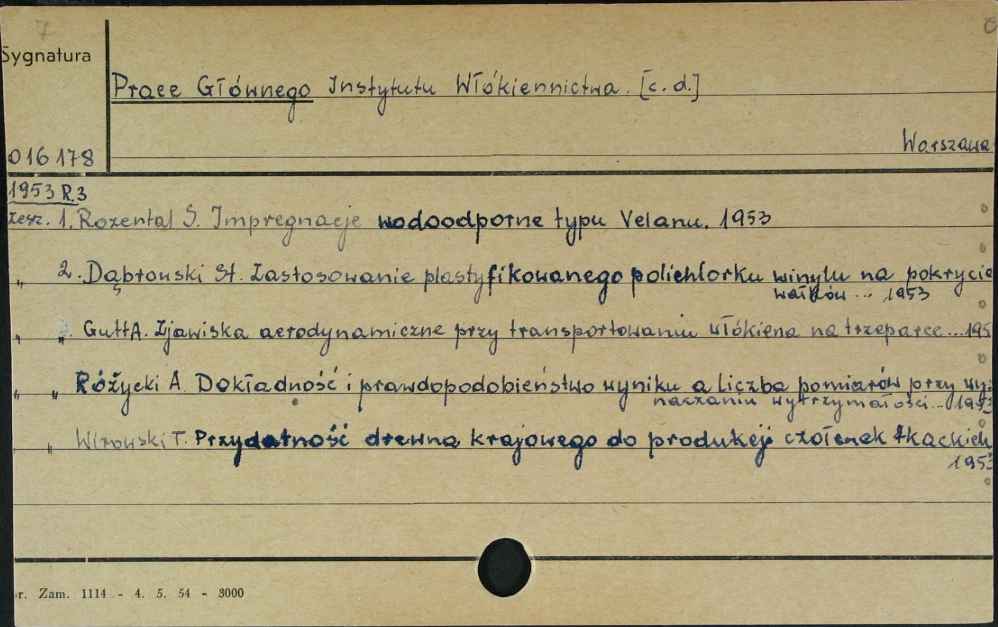 7
Sygnatura
Prace Głównego Instytutu Włókiennictwa. [c. d.]
016178
Warszawa
1953 R.3
zesz. 1. Rozental S. Impregnacje wodoodporne typu Velanu. 1953
„ 2. Dąbrowski St. Zastosowanie plastyfikowanego polichlorku winylu na pokrycie
wałków ... 1953
„ „ Gutt A. Zjawiska aerodynamiczne przy transportowaniu włókiena na trzeparce...195
„ „ Różycki A. Dokładność i prawdopodobieństwo wyniku a liczba pomiarów przy wy-
naczaniu wytrzymałości...1953
„ Wirowski T. Przydatność drewna krajowego do produkcji czółenek tkackich
1953
r. Zam. 1114 - 4. 5. 54 - 3000